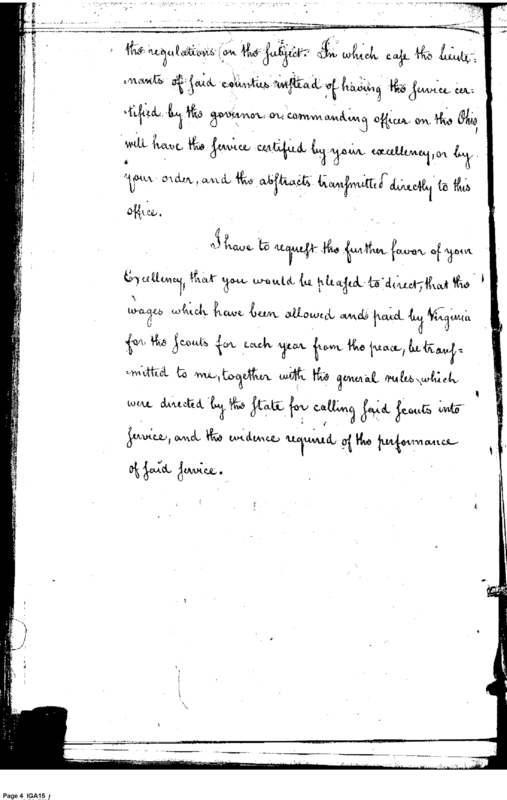 the regulations on the subject. In which case the lieute=
nants of said counties instead of having the service cer=
tified by the governor or commanding officer on the Ohio,
will have the service certified by your excellency, or by
your order, and the abstracts transmitted directly to this
office.
I have to request the further favor of your
Excellency, that you would be pleased to direct, that the
wages which have been allowed and paid by Virginia
for the scouts for each year from the peace, be trans=
mitted to me, together with the general rules which
were directed by the State for calling said scouts into
service, and the evidence required of the performance
of said service.
Page 4 IGA15